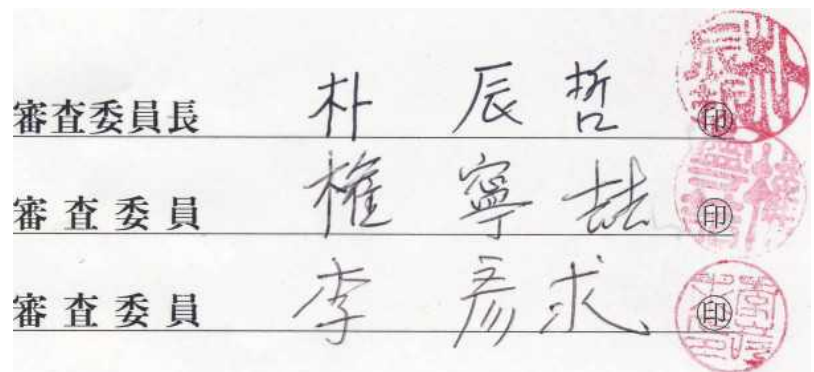 審査委員長 朴 辰 哲 ㊞
審査委員 權 寧 喆 ㊞
審査委員 李 彦 求 ㊞